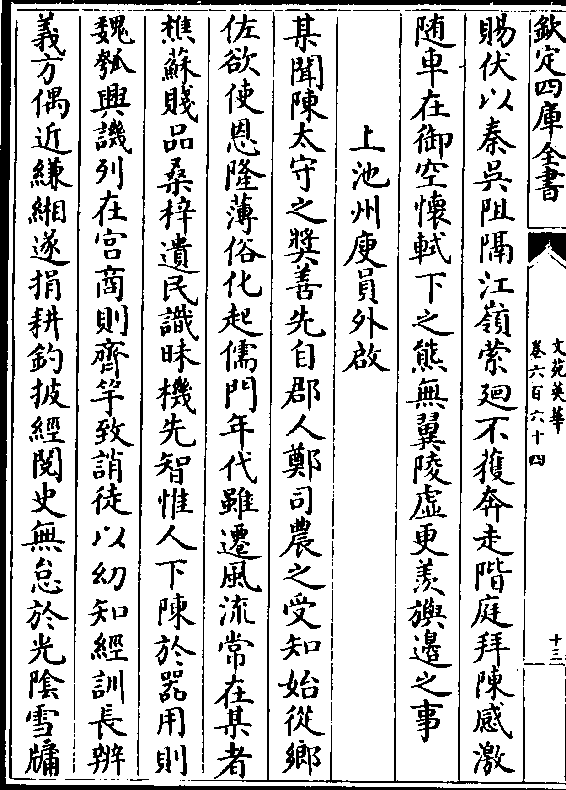 欽定四庫全書
文苑英華
卷六百六十四
十三
賜伏以秦吳阻隔江嶺縈廻不獲奔走階庭拜陳感激
随車在御空懷軾下之熊無翼陵虚更羨旟邉之事
上池州庾員外啟
某聞陳太守之奬善先自郡人鄭司農之受知始從鄉
佐欲使恩隆薄俗化起儒門年代雖遷風流常在某者
樵蘇賤品桑梓遺民識昧機先智惟人下陳於器用則
魏瓠興譏列在宫商則齊竽致誚徒以幼知經訓長辨
義方偶近縑緗遂捐耕釣披經閱史無怠於光隂雪牖